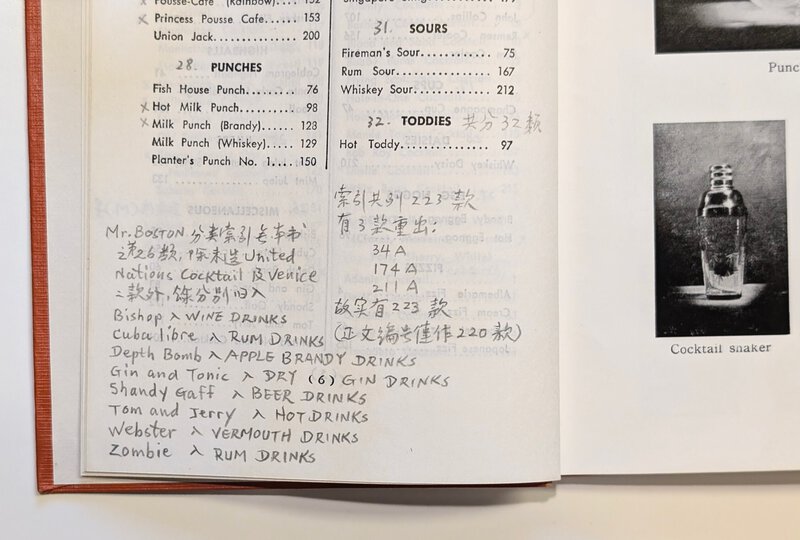 Pousse-Café (Rainbow)..... 152
x Princess Pousse Cafe... 153
Union Jack............... 200
28. PUNCHES
Fish House Punch......... 76
x Hot Milk Punch........... 98
x Milk Punch (Brandy)...... 128
Milk Punch (Whiskey)..... 129
Planter's Punch No. 1.... 150
31. SOURS
Fireman's Sour............ 75
Rum Sour................. 167
Whiskey Sour............. 212
32. TODDIES 共分32類
Hot Toddy................ 97
索引共列223款
有3款重出:
34 A
174 A
211 A
故实有223款
(正文编号僅作220款)
Mr. BOSTON 分类索引与本书
United
Nations Cocktail 及 Venice
二款外,餘分别归入
Bishop 入 WINE DRINKS
Cuba libre 入 RUM DRINKS
Depth Bomb 入 APPLE BRANDY DRINKS
Gin and Tonic 入 DRY (6) GIN DRINKS
Shandy Gaff 入 BEER DRINKS
Tom and Jerry 入 HOT DRINKS
Webster 入 VERMOUTH DRINKS
Zombie 入 RUM DRINKS
Punc
Cocktail shaker